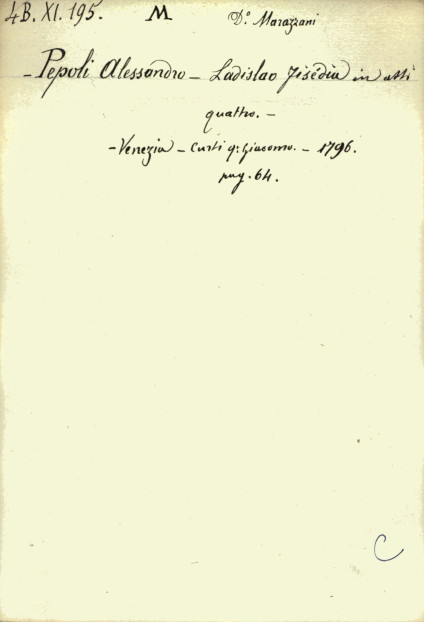 4B. XI. 195. M D.º Marazzani
- Pepoli Alessandro - Ladislao Fisedia in atti
quattro. -
- Venezia - Curti q. Giacomo. - 1796.
pag. 64.
C